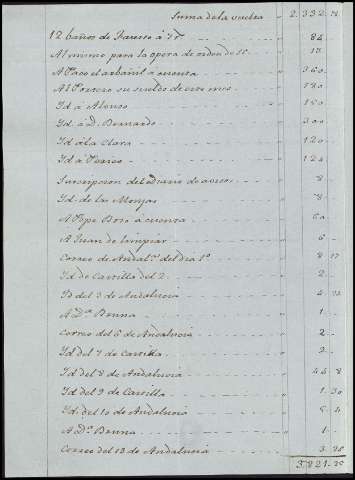 Suma de la vuelta 2.332
12 baños de Ynresso á 7 rs 84
Al mismo para la opera de orden de
A Paco el arbañil á cuenta 360
Al Portero su sueldo de este mes
Id á Alonso 150
Id á D. Bernardo 300
Id á la Clara 120
Id á Perico 120
Suscripcion del Diario de avisos 8
Id. de las Monjas 8
A Pepe Boso á cuenta 60
A Juan de limpiar 6
Correo de Andala del dia 1º 8 17
Id de Castilla del 2 2
Id del 3 de Andalucia 4
A Da. Bruna 1
Correo del 6 de Andalucia 2
Id del 7 de Castilla 2
Id del 8 de Andalucia 44 8
Id del 9 de Castilla 1 30
Id. del 10 de Andalucia 5 4
A Da. Bruna 1
Correo del 13 de Andalucia 3
3.821